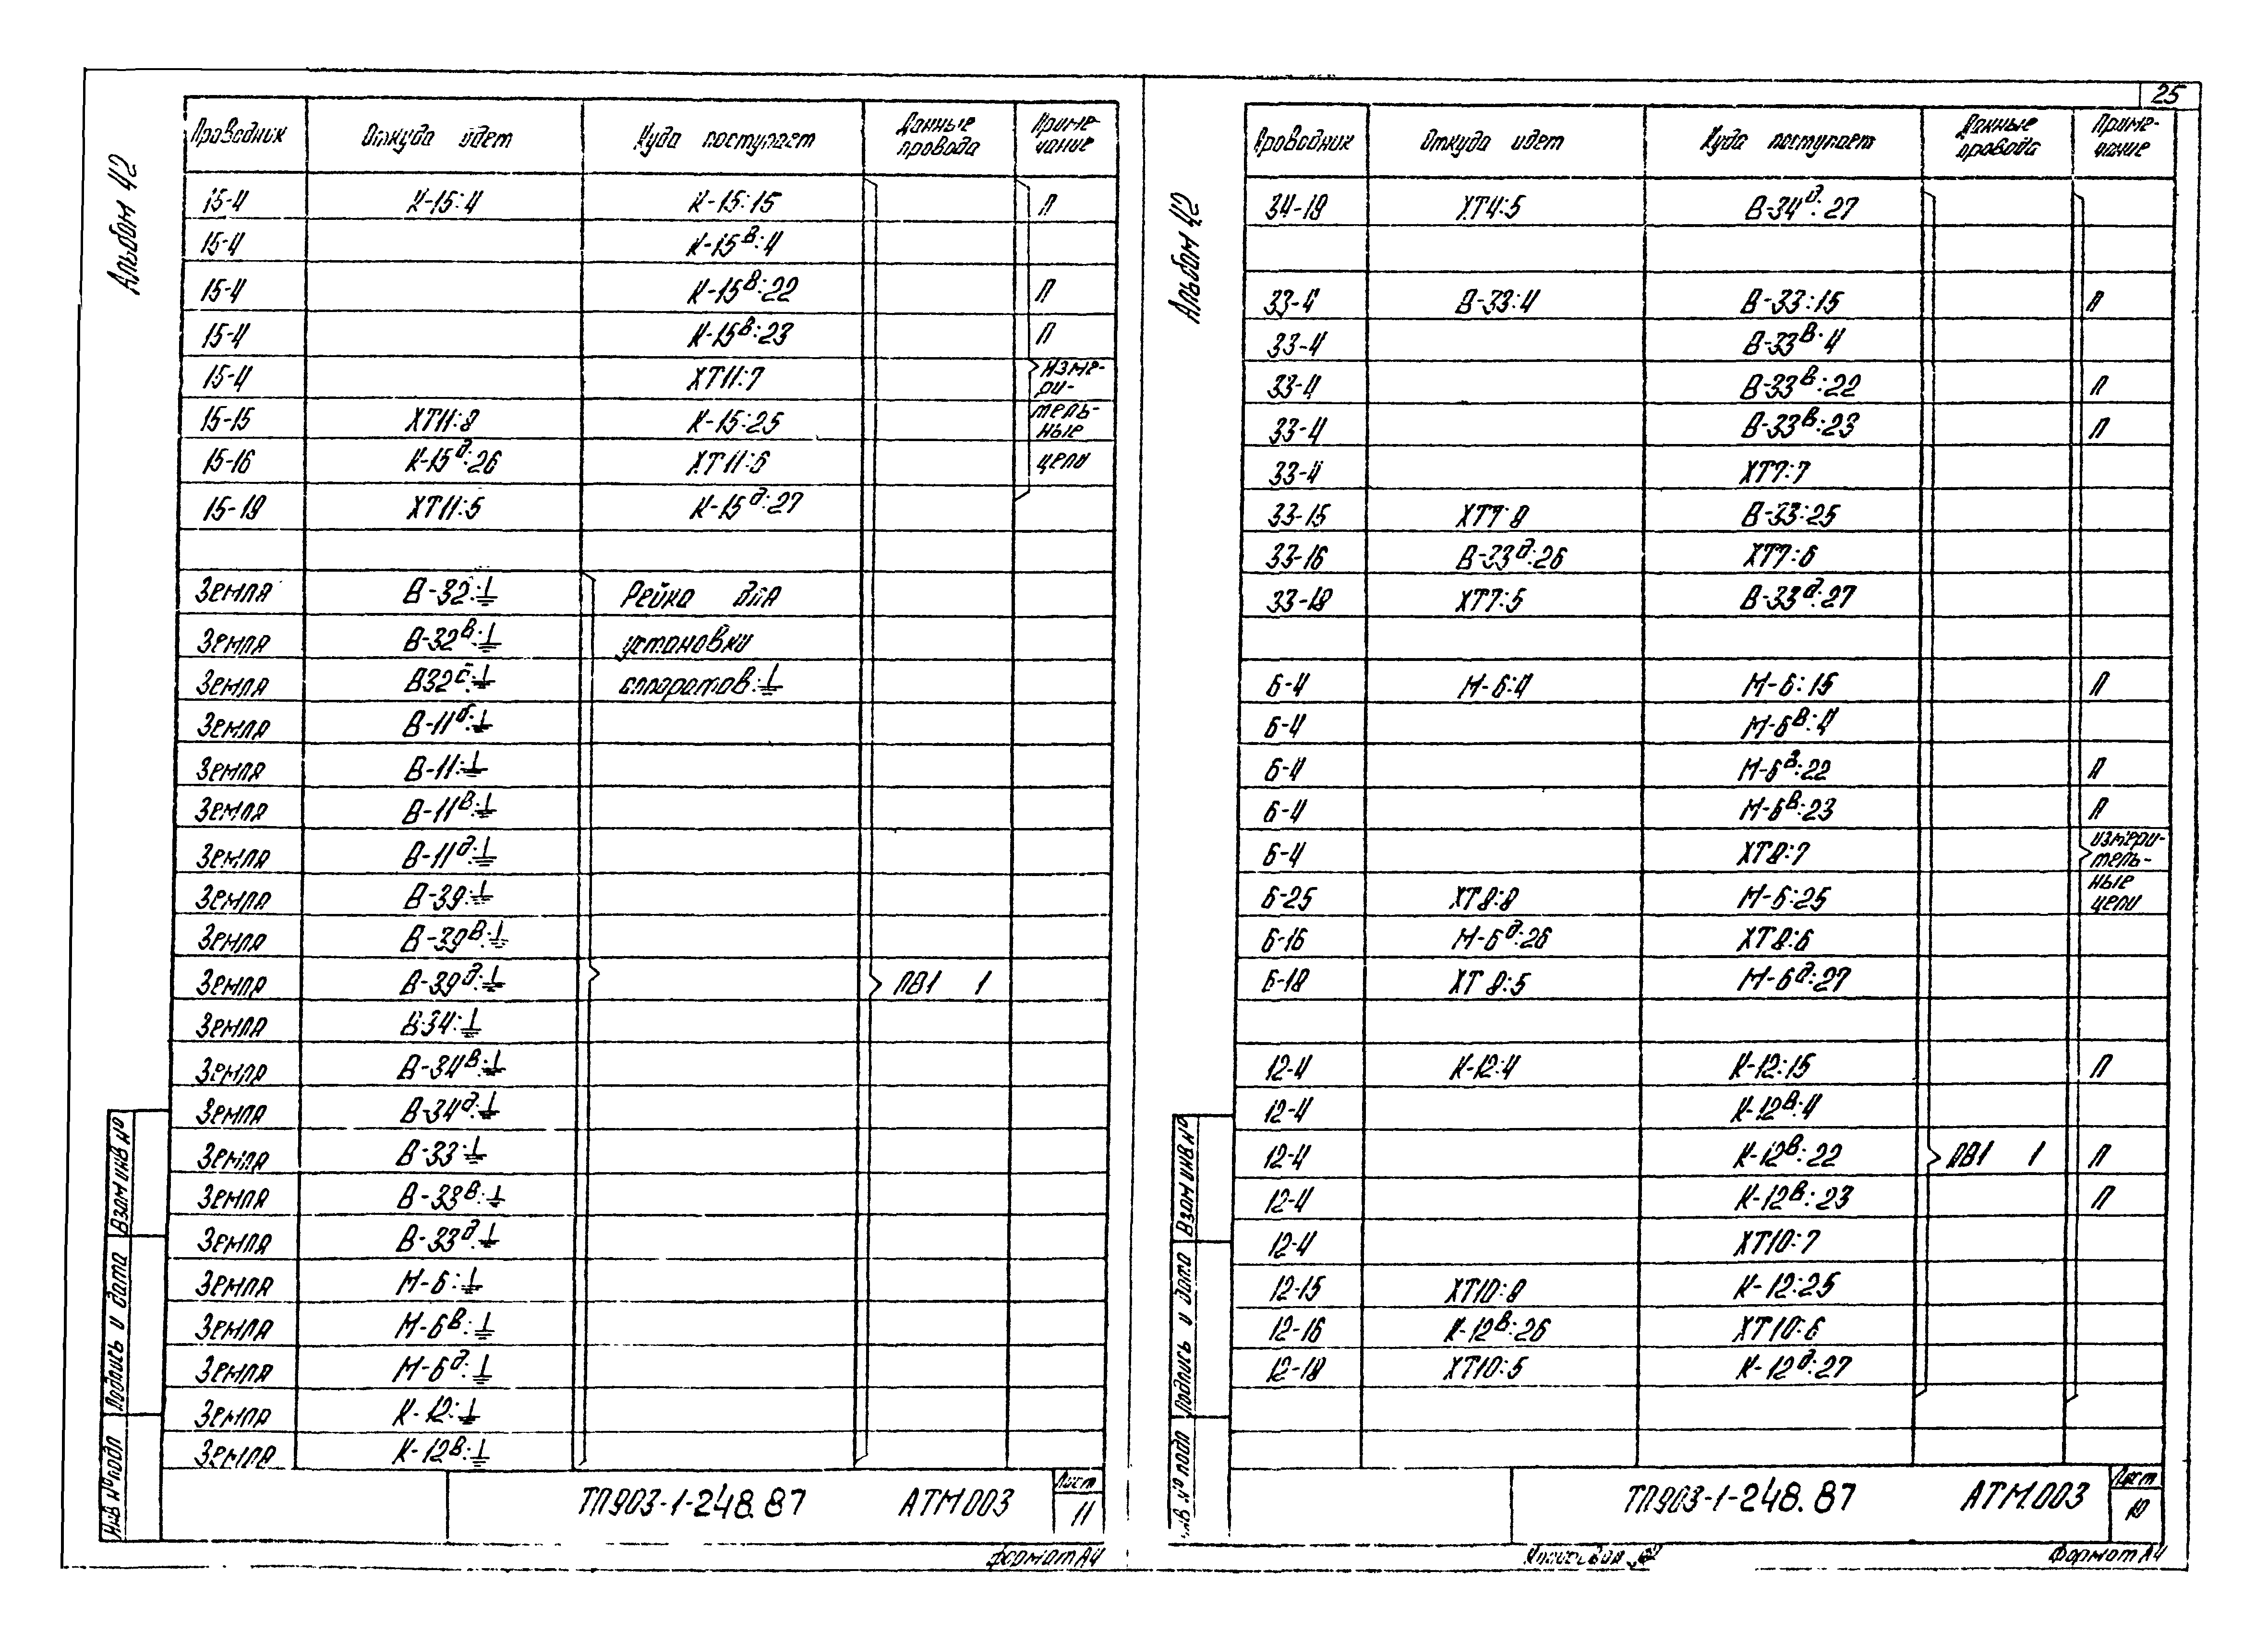 25
Альбом 42
Проводник Откуда идет Куда поступает Данные провода Приме-чание
15-4 К-15:4 К-15:15 П
15-4 К-15В:4
15-4 К-15В:22 П
15-4 К-15В:23 П
15-4 ХТ11:7 Измери-
15-15 ХТ11:8 К-15:25 тель-ные
15-16 К-15д:26 ХТ11:6 цепи
15-19 ХТ11:5 К-15д:27
Земля В-32:⏚ Рейка для
Земля В-32В:⏚ установки
Земля В32С:⏚ аппаратов:⏚
Земля В-11б:⏚
Земля В-11:⏚
Земля В-11В:⏚
Земля В-11д:⏚
Земля В-39:⏚
Земля В-39В:⏚
Земля В-39д:⏚ ПВ1 1
Земля В-34:⏚
Земля В-34В:⏚
Земля В-34д:⏚
Земля В-33:⏚
Земля В-33В:⏚
Земля В-33д:⏚
Земля М-6:⏚
Земля М-6В:⏚
Земля М-6д:⏚
Земля К-12:⏚
Земля К-12В:⏚
Взам инв №
Подпись и дата
Инв № подл
ТП903-1-248.87 АТМ.003 Лист 11
Формат А4
Альбом 42
Проводник Откуда идет Куда поступает Данные провода Приме-чание
34-19 ХТ4:5 В-34д:27
33-4 В-33:4 В-33:15 П
33-4 В-33В:4
33-4 В-33В:22 П
33-4 В-33В:23 П
33-4 ХТ7:7
33-15 ХТ7:8 В-33:25
33-16 В-33д:26 ХТ7:6
33-18 ХТ7:5 В-33д:27
6-4 М-6:4 М-6:15 П
6-4 М-6В:4
6-4 М-6В:22 П
6-4 М-6В:23 П
6-4 ХТ8:7 измери-тель-
6-25 ХТ8:8 М-6:25 ные цепи
6-16 М-6д:26 ХТ8:6
6-18 ХТ8:5 М-6д:27
12-4 К-12:4 К-12:15 П
12-4 К-12В:4
12-4 К-12В:22 ПВ1 1 П
12-4 К-12В:23 П
12-4 ХТ10:7
12-15 ХТ10:8 К-12:25
12-16 К-12В:26 ХТ10:6
12-18 ХТ10:5 К-12д:27
Взам инв №
Подпись и дата
Инв № подл
ТП903-1-248.87 АТМ.003 Лист 10
Формат А4